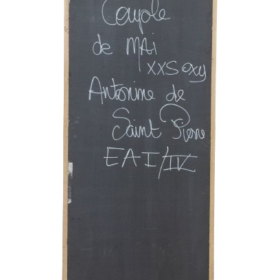 Couple
de MAi
xxsexy
Antonine de
Saint Pierre
EAI/IV